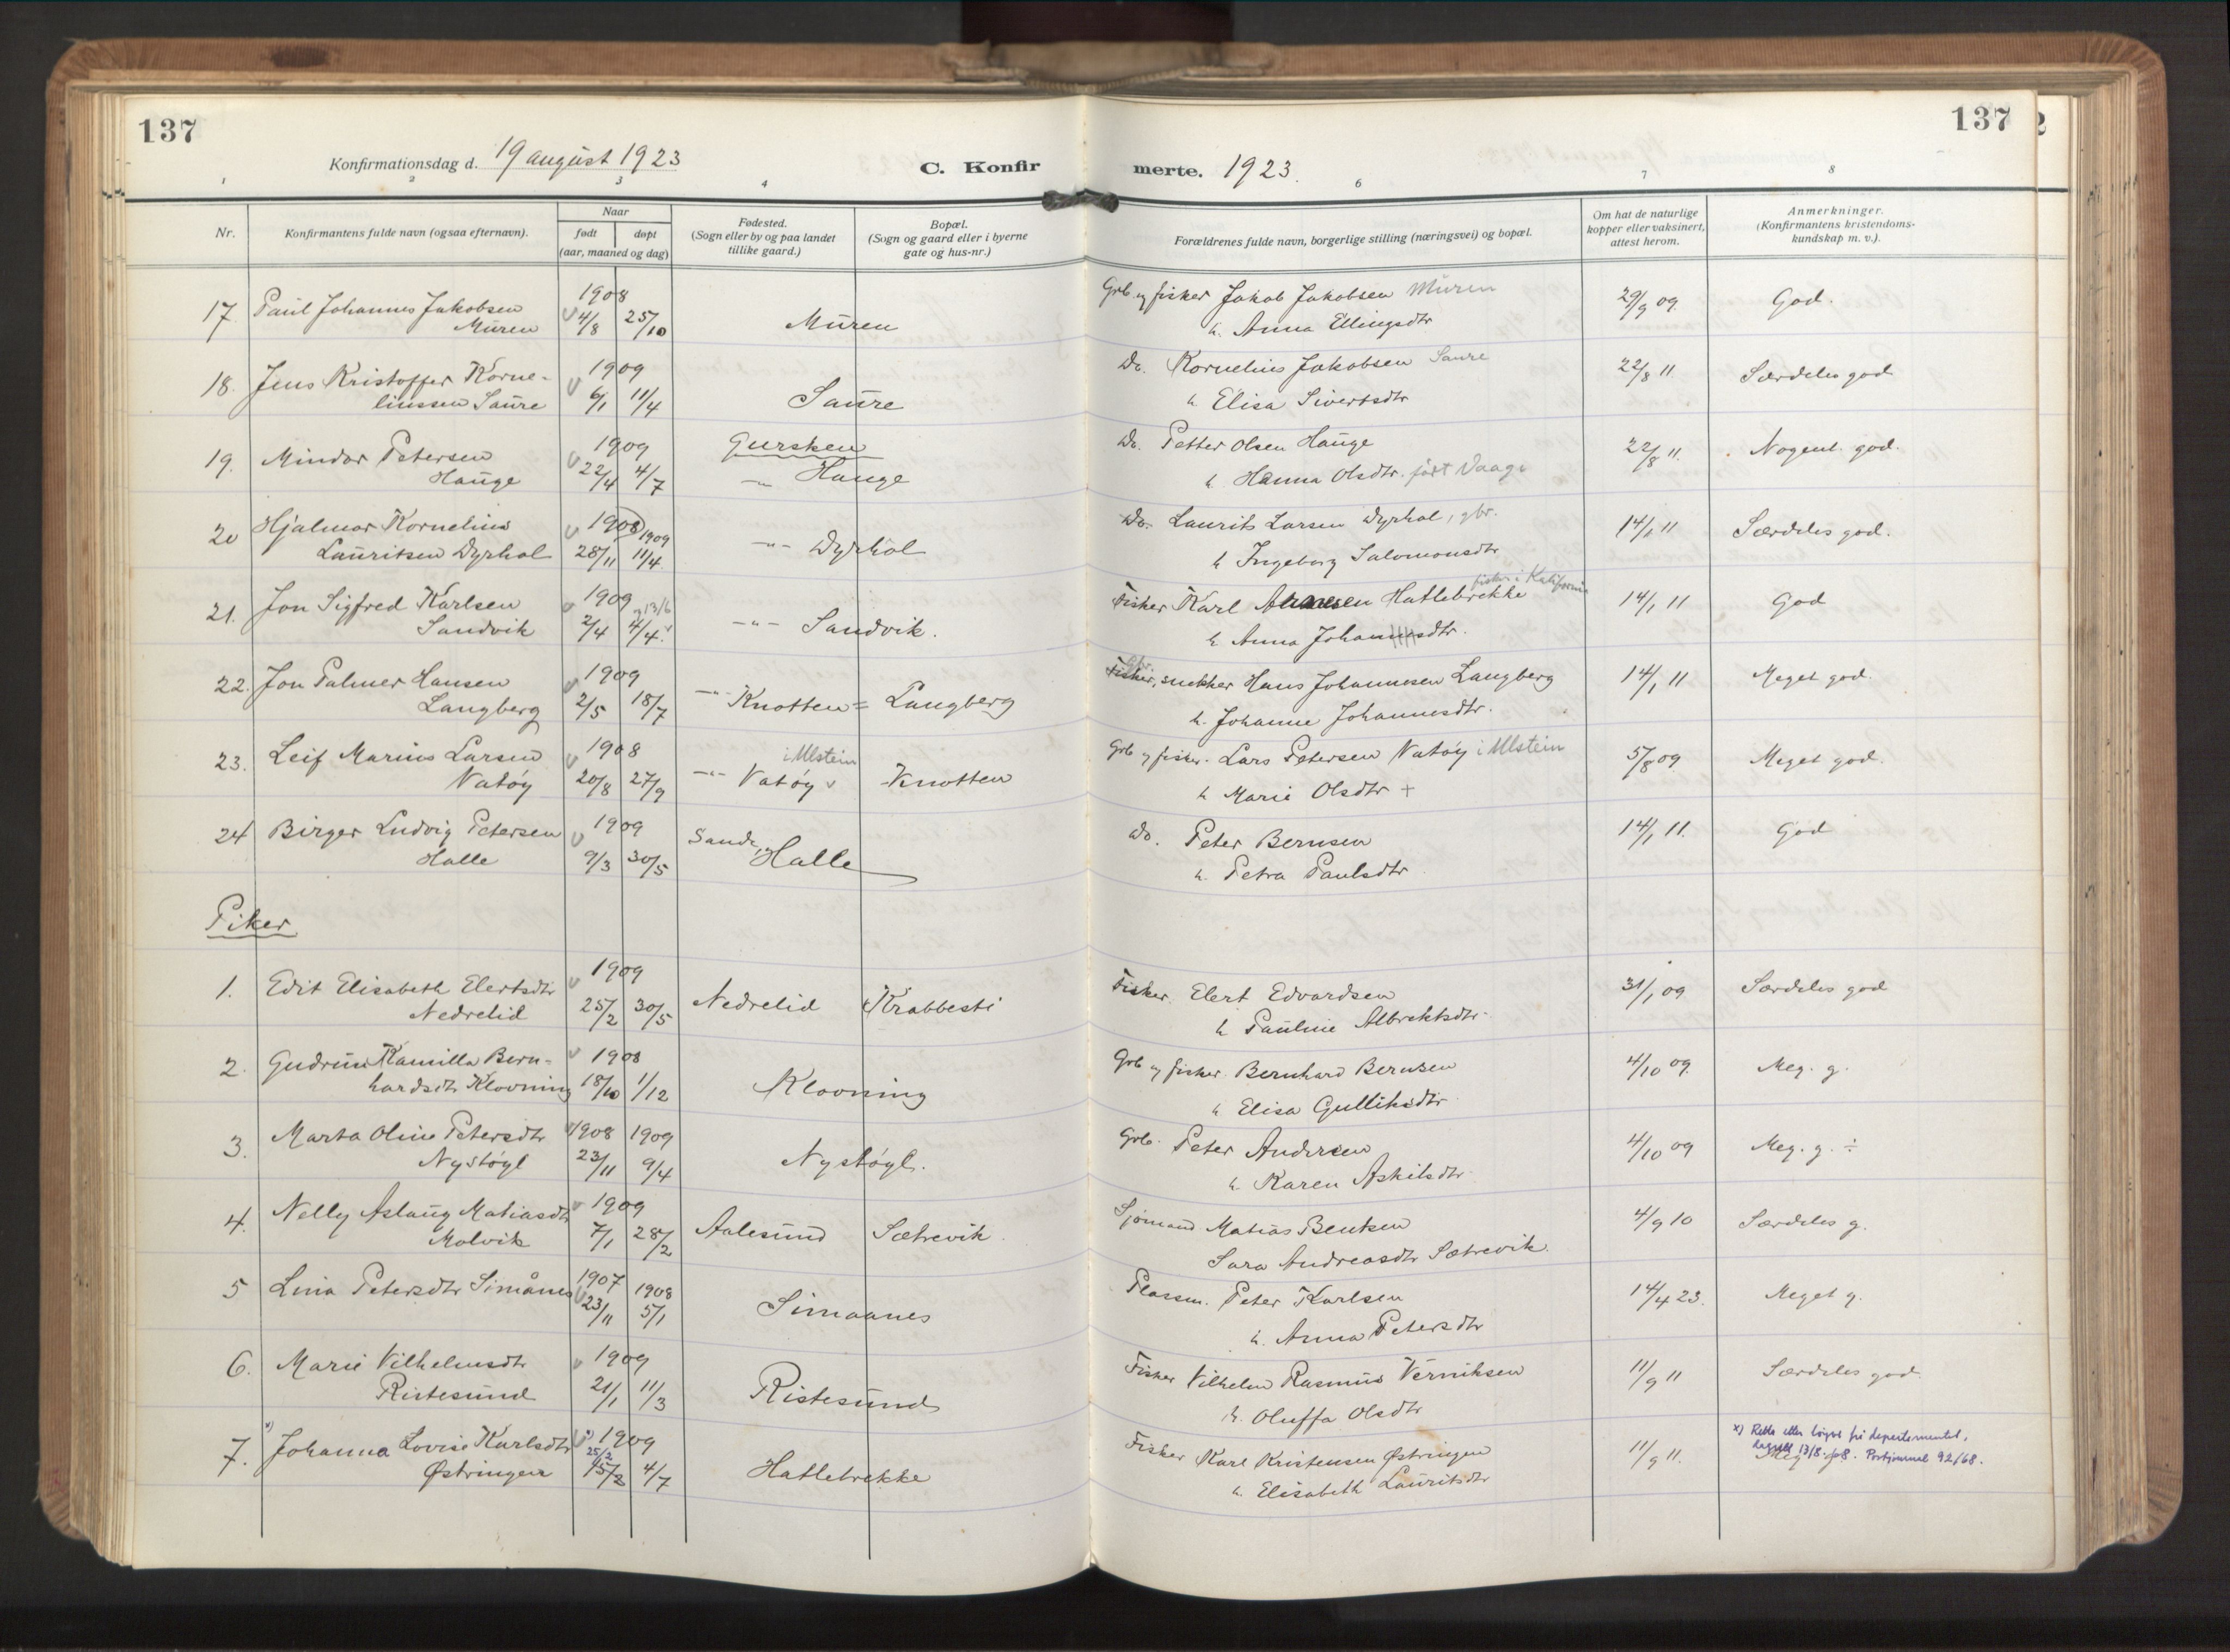 137
137
Konfirmationsdag d. 19 august 1923
C. Konfir
merte. 1923.
1 2 3 4 6 7 8
Nr.
Konfirmantens fulde navn (ogsaa efternavn).
Naar
født døpt
(aar, maaned og dag)
Fødested.
(Sogn eller by og paa landet
tillike gaard.)
Bopæl.
(Sogn og gaard eller i byerne
gate og hus-nr.)
Forældrenes fulde navn, borgerlige stilling (næringsvei) og bopæl.
Om hat de naturlige
kopper eller vaksinert,
attest herom.
Anmerkninger.
(Konfirmantens kristendoms-
kundskap m. v.).
17. Paul Johannes Jakobsen 1908 Grb. og fisker Jakob Jakobsen Muren 29/9 09. God.
Muren 4/8 25/10 Muren h. Anna Ellingsdtr
18. Jens Kristoffer Korne- 1909 Do. Kornelius Jakobsen Saure 22/8 11. Særdeles god
liussen Saure 6/1 11/4 Saure h. Elisa Sivertsdtr
19. Mindor Petersen 1909 Gursken Do. Petter Olsen Hauge 22/8 11. Nogenl. god.
Hauge 22/4 4/7 -"- Hauge h. Hanna Olsdtr. født Vaage
20 Hjalmar Kornelius 1908 1909 Do. Laurits Larsen Dyrhol, gbr. 14/1 11 Særdeles god.
Lauritsen Dyrhol 28/11 11/4. -"- Dyrhol h Ingeborg Salomonsdtr
21. Jon Sigfred Karlsen 1909 13/6 Fisker Karl Hatlebrekke fisker i Kalifornia 14/1 11 God
Sandvik 2/4 4/4. -"- Sandvik. h. Anna Johannesdtr.
22. Jon Palmer Hansen 1909 Gbr. Fisker, snekker Hans Johannesen Langberg 14/1 11 Meget god.
Langberg 2/5 18/7 -"- Knotten = Langberg h. Johanne Johannesdtr.
23. Leif Marius Larsen 1908 i Ulstein Grb og fisker. Lars Petersen Vatøy i Ulstein 5/8 09. Meget god.
Vatøy 20/8 27/9 -"- Vatøy Knotten h Marie Olsdtr +
24 Birger Ludvig Petersen 1909 Sande, Halle Do. Peter Bernsen 14/1 11. God
Halle 9/3 30/5 h. Petra Paulsdtr
Piker
1. Edit Elisabeth Elertsdtr 1909 Fisker. Elert Edvardsen 31/1 09 Særdeles god
Nedrelid 25/2 30/5 Nedrelid Krabbesti h Pauline Albrektsdtr
2. Gudrun Kamilla Bern- 1908 Grb og fisker. Bernhard Bernsen 4/10 09. Meg. g.
hardsdtr Klovning 18/10 1/12 Klovning h Elisa Gulliksdtr
3. Marta Oline Petersdtr 1908 1909 Grb. Peter Andersen 4/10 09 Meg. g. ÷
Nystøyl 23/11 9/4 Nystøyl. h. Karen Askilsdtr
4. Nelly Aslaug Matiasdtr 1909 Sjømand Matias Bentsen 4/9 10 Særdeles g.
Molvik 7/1 28/2 Aalesund Sætrevik Sara Andreasdtr Sætrevik.
5 Lina Petersdtr Simånes 1907 1908 Plassm. Peter Karlsen 14/4 23. Meget g.
23/11 5/1 Simaanes h. Anna Petersdtr
6. Marie Vilhelmsdtr 1909 Fisker Vilhelm Rasmus Verniksen 11/9 11 Særdeles god
Ristesund 21/1 11/3 Ristesund h. Oluffa Olsdtr
7. x) Johanna Lovise Karlsdtr x) 1909 25/2 Fisker Karl Kristensen Østringen 11/9 11. x) Retta etter løyve frå departementet,
Østringen 15/2 4/7 Hatlebrekke h. Elisabeth Lauritsdtr Meg dagsett 13/8-68. Postjournal 92/68.